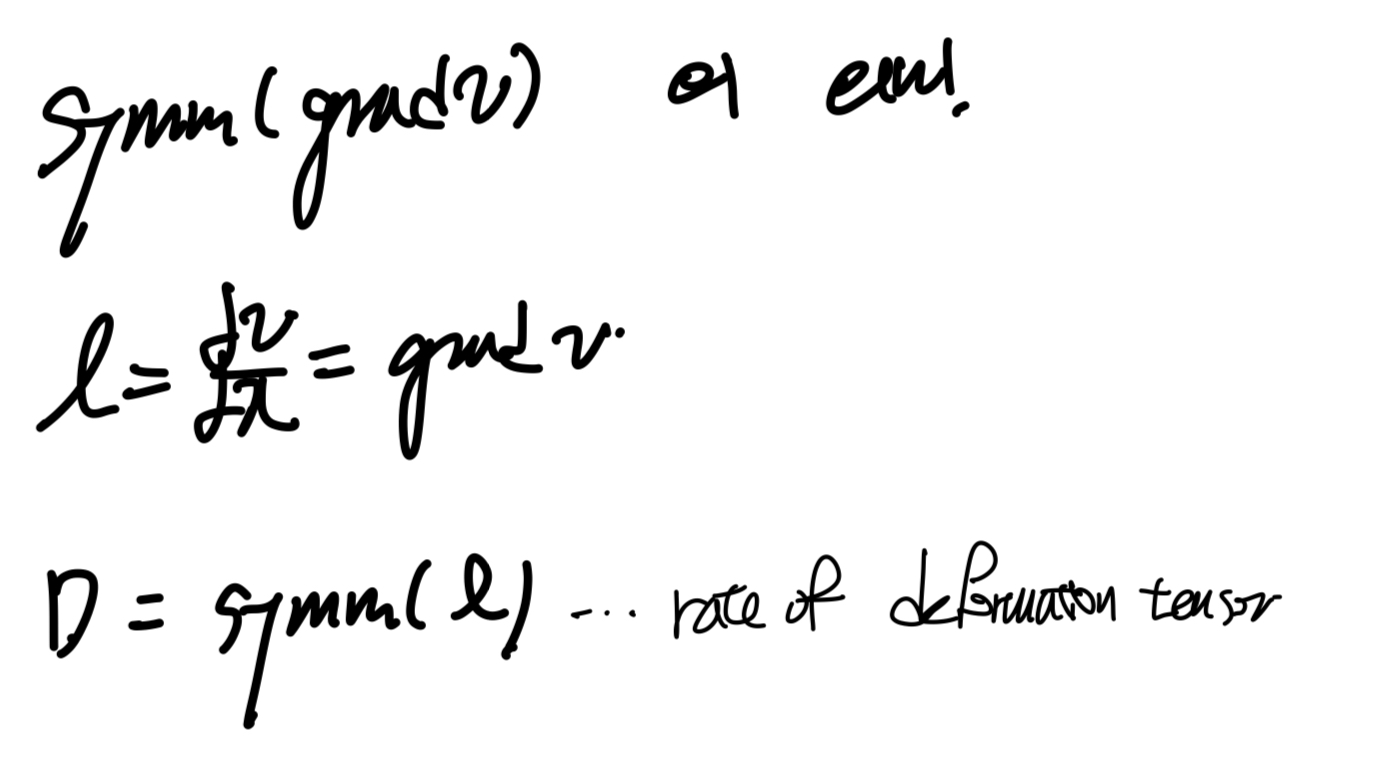 symm(grad v) 의
l = dv/dx = grad v.
D = symm(l) ... rate of deformation tensor